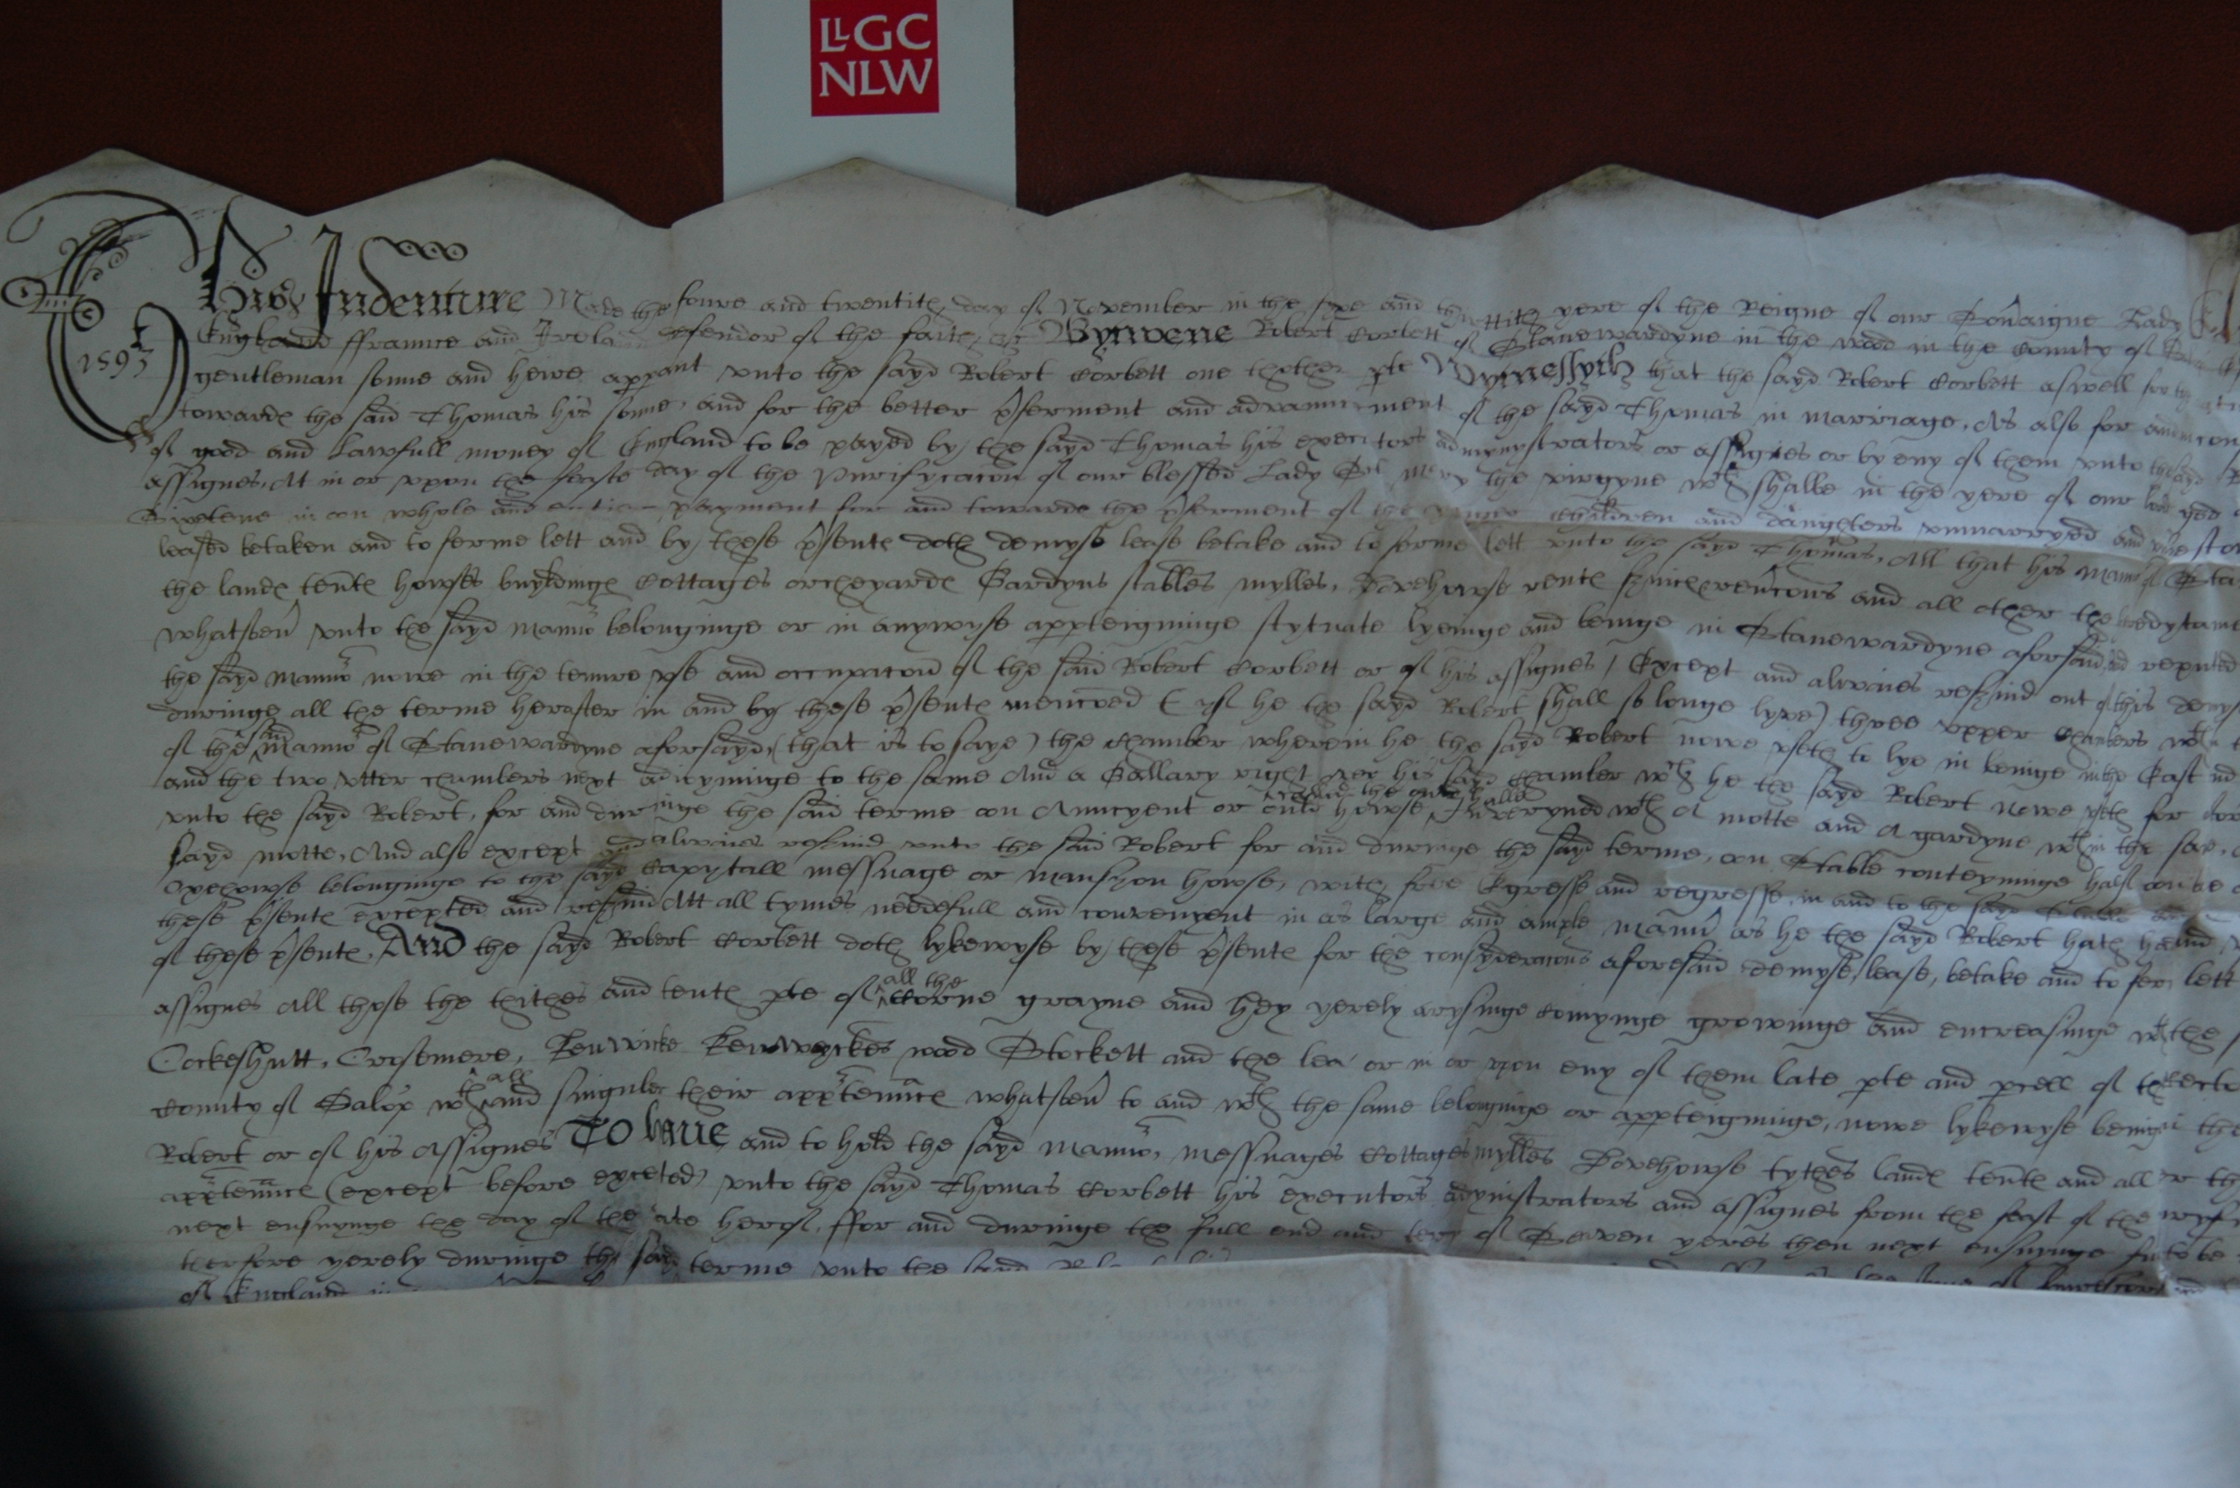 LLGC
NLW
This Indenture Made the foure and twentith day of November in the sixe and thirtith yere of the Reigne of our Sov'aigne Lady
1593
Englande ffraunce and Irela defendor of the faith, &c Bytwene Robert Corbett of Stanewardyne in the wood in the county of
gentleman sonne and heire apparant unto the sayd Robert Corbett one thother pte Wytnessyth that the sayd Robert Corbett aswell for
towarde the said Thomas his sonne, and for the better p'ferment and advauncement of the sayd Thomas in marriage, As also for and in con
of good and Lawfull money of England to be payed by the sayd Thomas his executors admynystrators or assignes or by eny of them unto the sayd
assignes, At in or upon the feaste day of the Purifycacon of our blessed Lady St Mary the virgyne wch shalbe in the yere of our lord god
Sixtene in on whole and entier payment for and towarde the p'ferment of the children and daughters unmarryed and
leased betaken and to ferme lett and by these p'sente doth demyse lease betake and to ferme lett unto the sayd Thomas, All that his mano' of Sta
the lande tente howses buyldinge Cottages orcheyarde Gardyns stables mylles, Dovehowse rente s'vice rev'cons and all other the heredytame
whatsoev' unto the sayd manno' belonginge or in anywyse appteigninge scytuate lyeinge and beinge in Stanewardyne aforsaid, and reputed
the sayd manno' nowe in the tenure use and occupacon of the said Robert Corbett or of his assignes / Except and alwaies res'vid out of this demys
duringe all the terme herafter in and by these p'sente menconed (yf he the sayd Robert shall so longe lyve) three upper chambers wth
of the said Manno' of Stanewardyne aforsayd, (that is to saye) the chamber wherein he the sayd Robert nowe useth to lye in beinge in the East
and the two utter chambers next adioyninge to the same And a Gallary right over his sayd chamber wch he the sayd Robert nowe useth for
unto the sayd Robert, for and duringe the said terme on Auncyent or ould howse called the ould hall Invyroned wth A motte and A gardyne wthin the
sayd motte, And also except and alwaies res'vid unto the said Robert for and duringe the sayd terme, on Stable conteyninge half
Oxehowse belonginge to the sayd Capytall messuage or mansyon howse, with free Egresse and regresse, in and to the sayd
these p'sente excepted and res'vid Att all tymes needefull and convenyent in as large and ample mann' as he the sayd Robert hath
of these p'sente, And the sayd Robert Corbett doth lykewyse by these p'sente for the consyderacions aforesaid demyse, lease, betake and to fer lett
assignes All those the tithes and tenth pte of all the Corne grayne and Hey yerely arysinge comynge growinge and encreasinge wth the
Cockeshutt, Crosemere, Kenwicke Kenwyckes wood Stockett and the lea or in or upon eny of them late pte and pcell of the
county of Salop wth all and singuler their apptennce whatsoev' to and wth the same belonginge or appteigninge, nowe lykewyse beinge the
Robert or of his Assignes To have and to hold the sayd Manno', messuages Cottages mylles Dovehowse tythes lande tente and all the
apptennce (except before excepted) unto the sayd Thomas Corbett his executors admynistrators and assignes from the feast of the
next ensuynge the day of the date herof, ffor and duringe the full end and terme of Seaven yeres then next ensuynge
therfore yerely duringe the said terme unto the sayd
of England